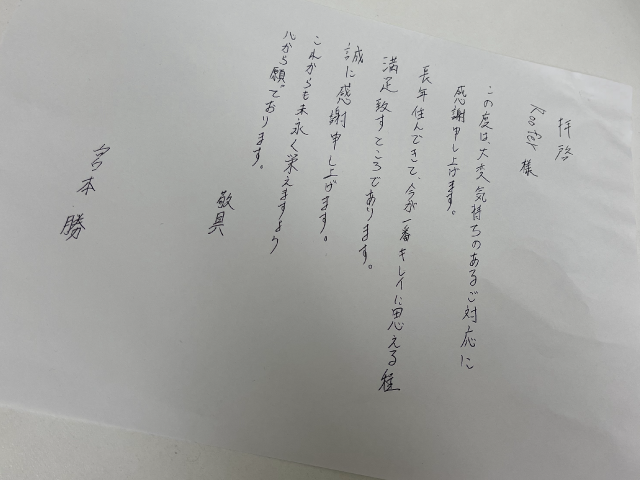 拝啓
様
この度は、大変気持ちのあるご対応に
感謝申し上げます。
長年住んできて、今が一番キレイに思える程
満足致すところであります。
誠に感謝申し上げます。
これからも末永く栄えますよう
心から願っております。
敬具
宮本 勝